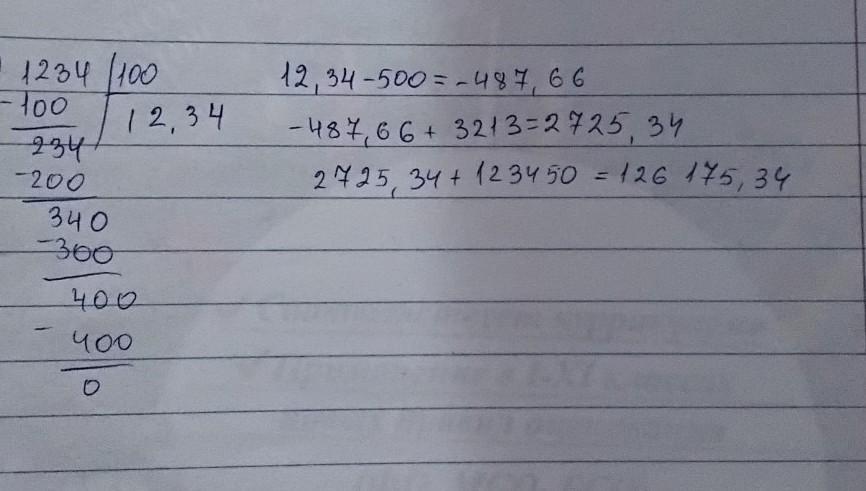 1234 100
-100 12,34
234
-200
340
-300
400
- 400
0
12,34-500=-487,66
-487,66+3213=2725,34
2725,34+123450=126 175,34